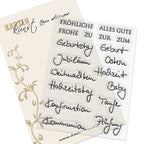 KARTEN
Kunst
FRÖHLICHE ALLES GUTE
FROHE ZUR ZUM
Geburtstag
Geburt
Jubiläum
Ostern
Weihnachten
Hochzeit
Hochzeitstag
Baby
Konfirmation
Taufe
Kommunion